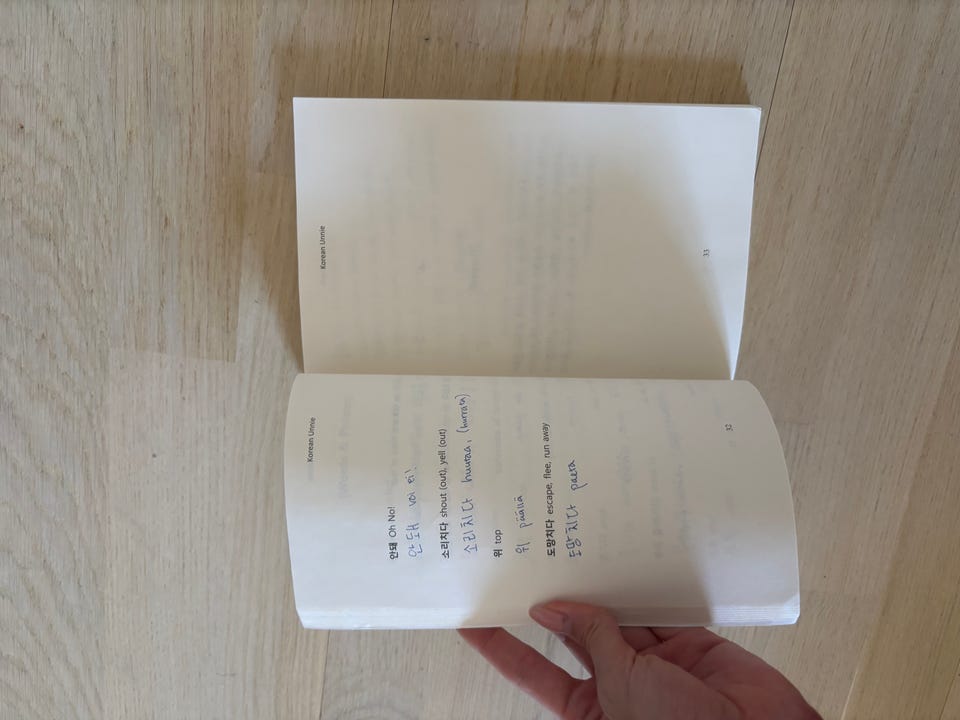 Korean Unnie
안돼 Oh No!
안돼 voi ei!
소리치다 shout (out), yell (out)
소리치다 huutaa, (hurrata)
위 top
위 päällä
도망치다 escape, flee, run away
도망치다 paeta
32
Korean Unnie
33